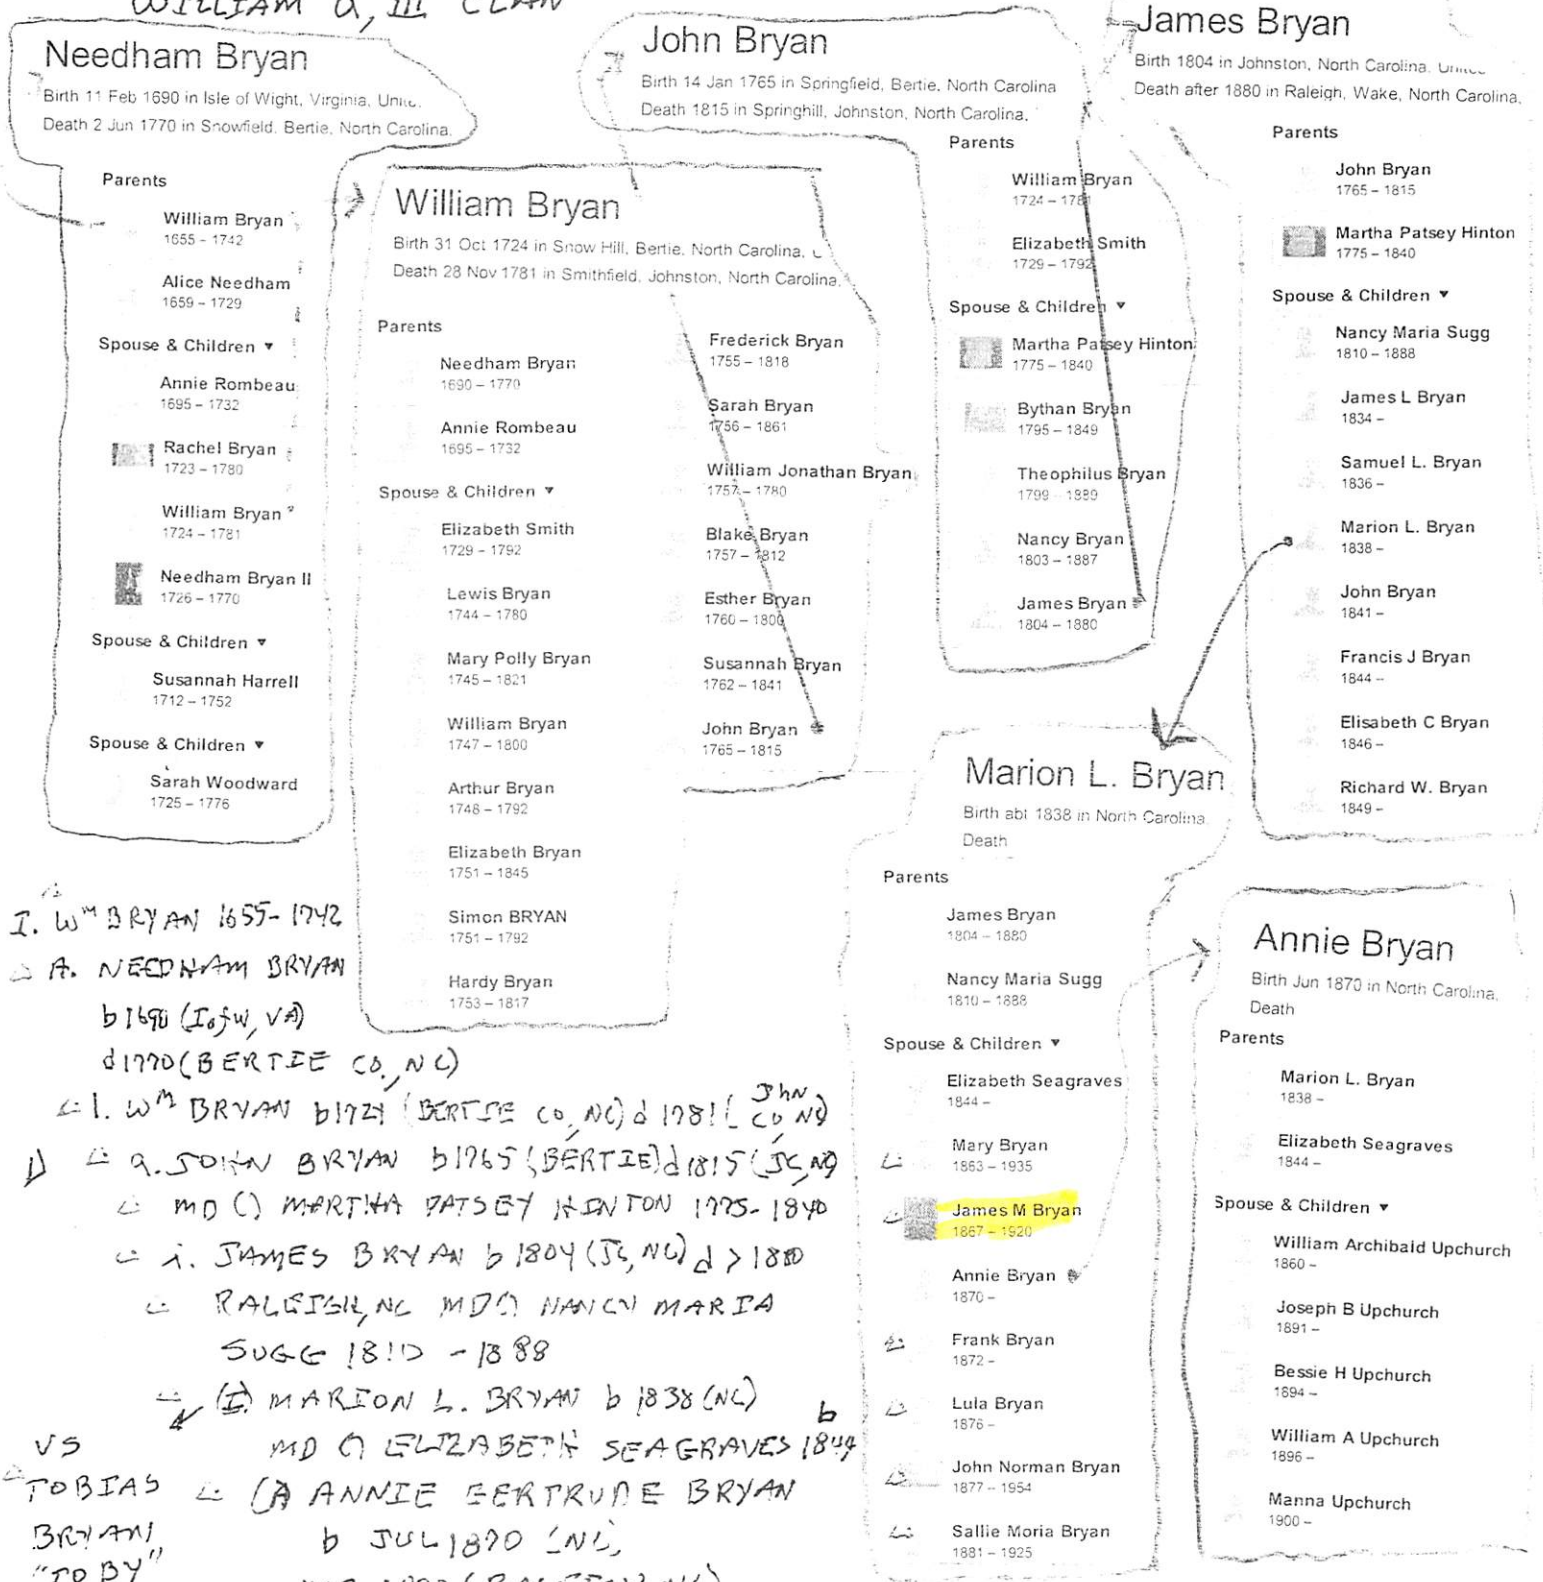 WILLIAM a, III CLAN
Needham Bryan
Birth 11 Feb 1690 in Isle of Wight, Virginia,
Death 2 Jun 1770 in Snowfield, Bertie, North Carolina.
Parents
William Bryan
1655 – 1742
Alice Needham
1659 – 1729
Spouse & Children ▼
Annie Rombeau
1695 – 1732
Rachel Bryan
1723 – 1780
William Bryan
1724 – 1781
Needham Bryan II
1726 – 1770
Spouse & Children ▼
Susannah Harrell
1712 – 1752
Spouse & Children ▼
Sarah Woodward
1725 – 1776
William Bryan
Birth 31 Oct 1724 in Snow Hill, Bertie, North Carolina,
Death 28 Nov 1781 in Smithfield, Johnston, North Carolina,
Parents
Needham Bryan
1690 – 1770
Annie Rombeau
1695 – 1732
Spouse & Children ▼
Elizabeth Smith
1729 – 1792
Lewis Bryan
1744 – 1780
Mary Polly Bryan
1745 – 1821
William Bryan
1747 – 1800
Arthur Bryan
1748 – 1792
Elizabeth Bryan
1751 – 1845
Simon BRYAN
1751 – 1792
Hardy Bryan
1753 – 1817
Frederick Bryan
1755 – 1818
Sarah Bryan
1756 – 1861
William Jonathan Bryan
1757 – 1780
Blake Bryan
1757 – 1812
Esther Bryan
1760 – 1800
Susannah Bryan
1762 – 1841
John Bryan
1765 – 1815
John Bryan
Birth 14 Jan 1765 in Springfield, Bertie, North Carolina
Death 1815 in Springhill, Johnston, North Carolina,
Parents
William Bryan
1724 – 1781
Elizabeth Smith
1729 – 1792
Spouse & Children ▼
Martha Patsey Hinton
1775 – 1840
Bythan Bryan
1795 – 1849
Theophilus Bryan
1799 – 1889
Nancy Bryan
1803 – 1887
James Bryan
1804 – 1880
James Bryan
Birth 1804 in Johnston, North Carolina,
Death after 1880 in Raleigh, Wake, North Carolina,
Parents
John Bryan
1765 – 1815
Martha Patsey Hinton
1775 – 1840
Spouse & Children ▼
Nancy Maria Sugg
1810 – 1888
James L Bryan
1834 –
Samuel L. Bryan
1836 –
Marion L. Bryan
1838 –
John Bryan
1841 –
Francis J Bryan
1844 –
Elisabeth C Bryan
1846 –
Richard W. Bryan
1849 –
Marion L. Bryan
Birth abt 1838 in North Carolina,
Death
Parents
James Bryan
1804 – 1880
Nancy Maria Sugg
1810 – 1888
Spouse & Children ▼
Elizabeth Seagraves
1844 –
Mary Bryan
1863 – 1935
James M Bryan
1867 – 1920
Annie Bryan
1870 –
Frank Bryan
1872 –
Lula Bryan
1876 –
John Norman Bryan
1877 – 1954
Sallie Moria Bryan
1881 – 1925
Annie Bryan
Birth Jun 1870 in North Carolina,
Death
Parents
Marion L. Bryan
1838 –
Elizabeth Seagraves
1844 –
Spouse & Children ▼
William Archibald Upchurch
1860 –
Joseph B Upchurch
1891 –
Bessie H Upchurch
1894 –
William A Upchurch
1896 –
Manna Upchurch
1900 –
I. Wm BRYAN 1655-1742
A. NEEDHAM BRYAN
b 1690 (I of W, VA)
d 1770 (BERTIE CO, NC)
1. Wm BRYAN b1724 (BERTIE CO, NC) d 1781 (Jhn CO, NC)
a. JOHN BRYAN b1765 (BERTIE) d 1815 (JC, NC)
MD () MARTHA PATSEY HINTON 1775-1840
i. JAMES BRYAN b 1804 (JC, NC) d > 1880
RALEIGH, NC MD () NANCY MARIA
SUGG 1810 - 1888
(I) MARION L. BRYAN b 1838 (NC)
MD () ELIZABETH SEAGRAVES b 1844
(A) ANNIE GERTRUDE BRYAN
b JUL 1870 (NC)
VS
TOBIAS
BRYAN
"TOBY"